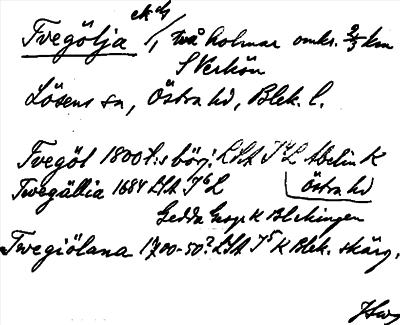 Tvegölja ek o/1, två holmar omkr. 2/3 km
S Verkön
Lösens sn, Östra hd, Blek. l.
Tvegöl 1800 t.:s börj. LSA Abelin K
Östra hd
Twegällia 1684 LSA
Gedda Geogr K Blekingen
Twegiölana 1700-50? LSA K Blek. skärg.